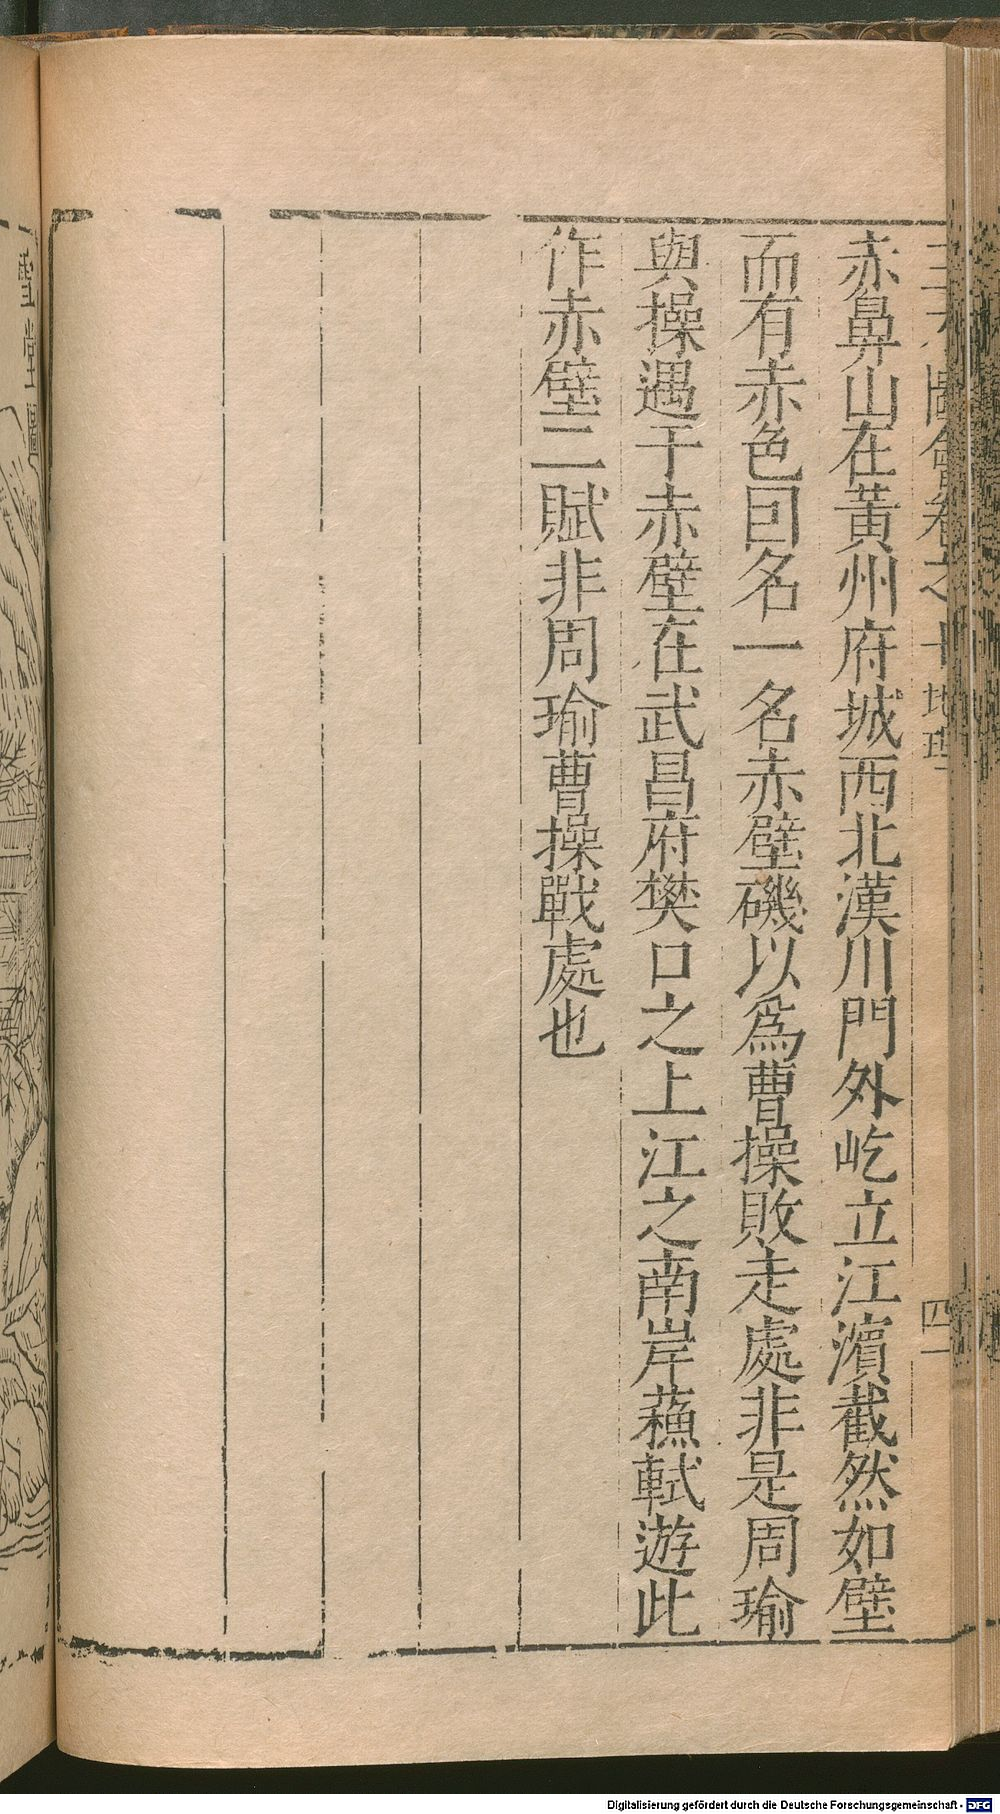 三才圖會卷之十 地理 四一
赤鼻山在黃州府城西北漢川門外屹立江濵截然如壁
而有赤色囙名一名赤壁磯以爲曹操敗走處非是周瑜
與操遇于赤壁在武昌府樊口之上江之南岸蘓軾遊此
作赤壁二賦非周瑜曹操戰處也
雪堂圖
Digitalisierung gefördert durch die Deutsche Forschungsgemeinschaft - DFG